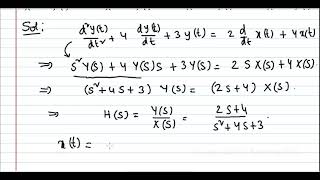 Sol:
d²y(t)/dt² + 4 dy(t)/dt + 3 y(t) = 2 d/dt x(t) + 4x(t)
⇒ s² Y(s) + 4 Y(s) s + 3 Y(s) = 2 s X(s) + 4 X(s)
⇒ (s² + 4 s + 3) Y(s) = (2s + 4) X(s)
⇒ H(s) = Y(s)/X(s) = 2s+4/s²+4s+3.
x(t) =